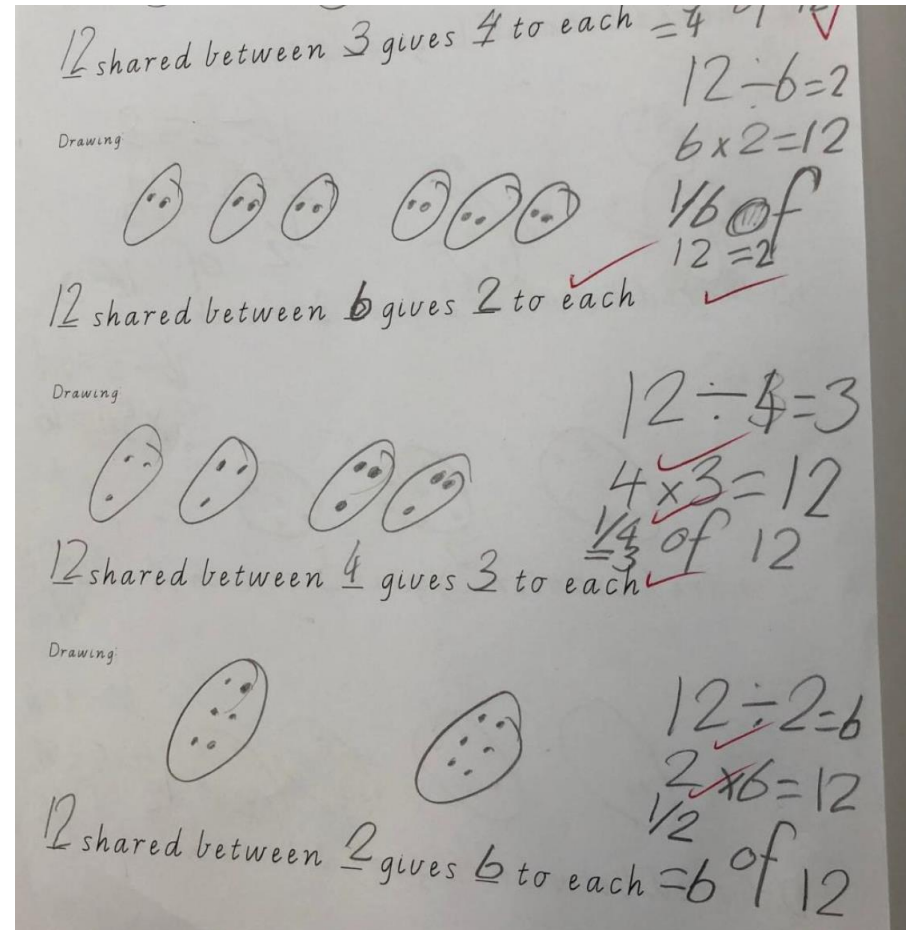 12 shared between 3 gives 4 to each = 4 of
12 ÷ 6 = 2
6 x 2 = 12
Drawing
1/6 of
12 = 2
12 shared between 6 gives 2 to each
Drawing
12 ÷ 4 = 3
4 x 3 = 12
1/4 of 12
= 3
12 shared between 4 gives 3 to each
Drawing
12 ÷ 2 = 6
2 x 6 = 12
1/2
12 shared between 2 gives 6 to each = 6 of 12